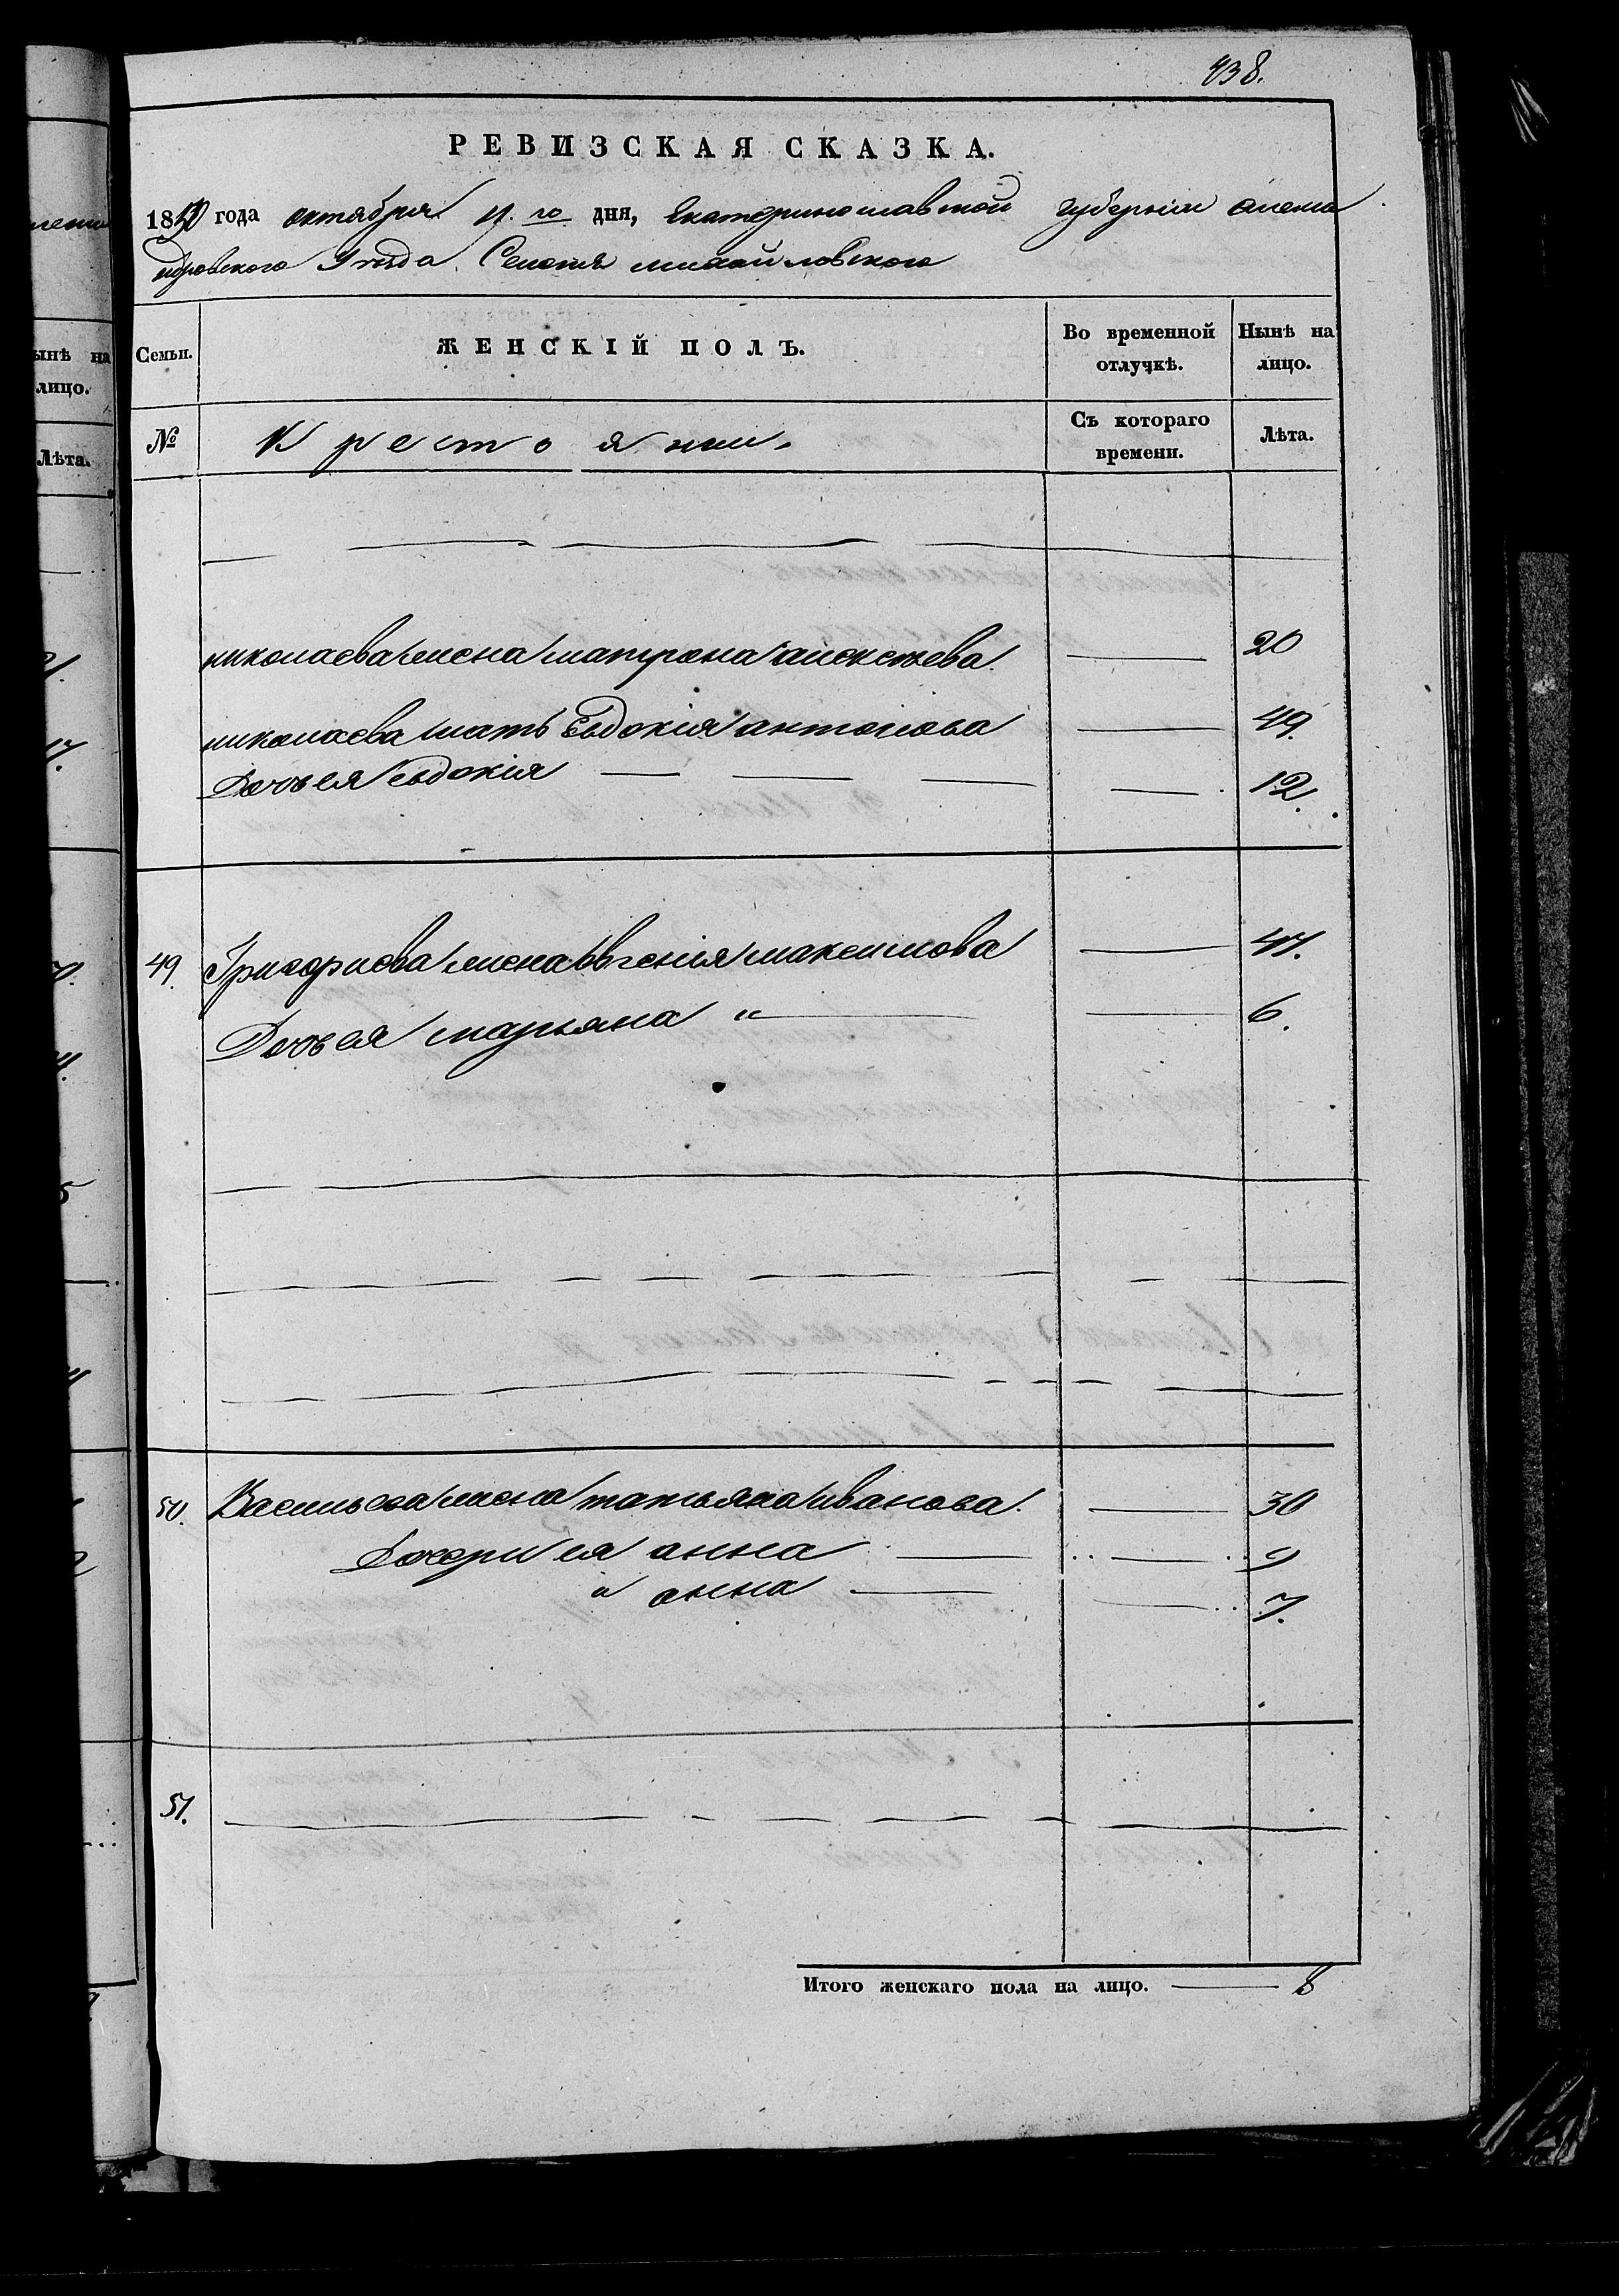 438.
РЕВИЗСКАЯ СКАЗКА.
1850 года октября 11.го дня, Екатеринославской губерніи алекса
ндровского Уезда. Селенія михайловского
Семьи. ЖЕНСКІЙ ПОЛЪ. Во временной отлучкѣ. Нынѣ на лицо.
№ Крестоянки. Съ котораго времени. Лѣта.
николаева жена матрона алексеева 20
николаева мать Евдокія антонова 49.
Дочь ея евдокія 12.
49. Григориева жена Евгенія максимова 47.
Дочь ея марьяна " 6.
50. Васильева жена татьяна иванова 30
Дочери ея анна 9
" анна 7.
51.
Итого женскаго пола на лицо. 8
ынѣ на
лицо.
Лѣта.